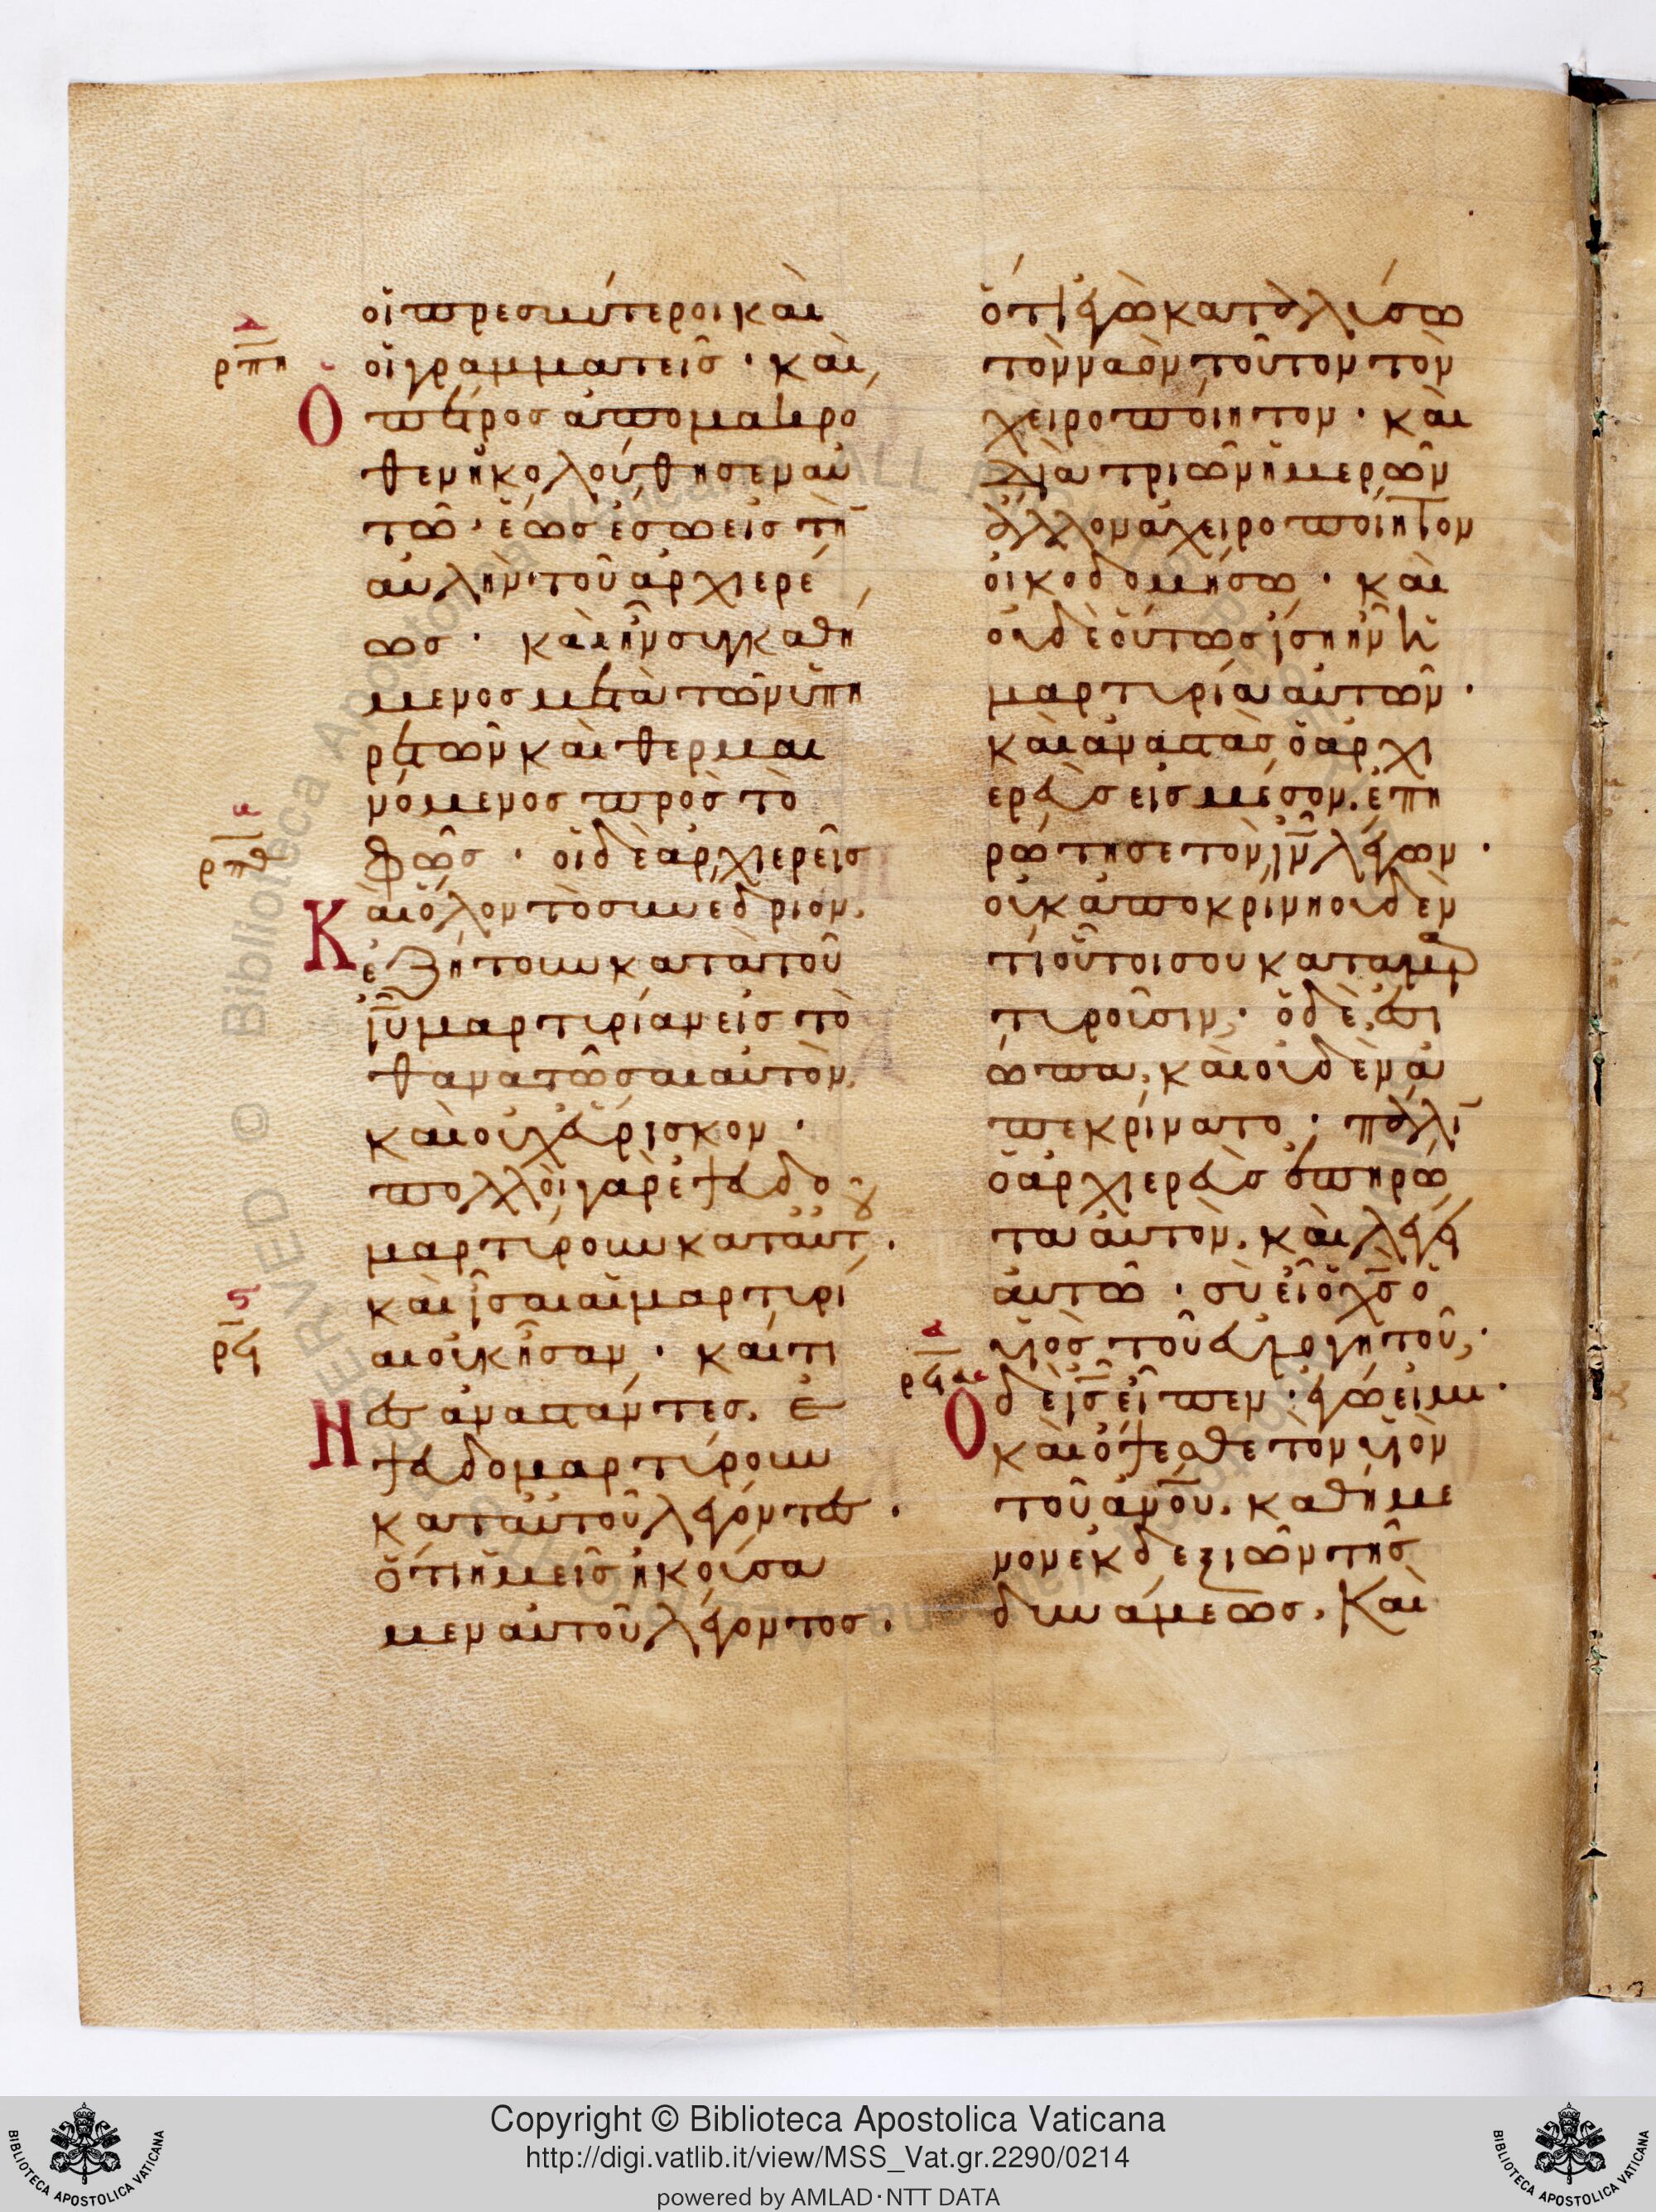 οἱ πρεσβύτεροι καὶ
οἱ γραμματεῖσ · καὶ
ρπη
Ὁ πέτροσ ἀπομακρο
θεν ἠκολούθησεν αὐ
τῶ · ἕωσ ἔσω εἰσ τὴ
αὐλὴν τοῦ ἀρχιερέ
ωσ · καὶ ἦν συγκαθή
μενοσ μετὰ τῶν ὑπη
ρετῶν καὶ θερμαι
νόμενοσ πρὸσ τὸ
φῶσ · οἱ δὲ ἀρχιερεῖσ
ρπθ
Καὶ ὅλον τὸ συνέδριον.
ἐζήτουν κατὰ τοῦ
ιυ μαρτυρίαν εἰσ τὸ
θανατῶσαι αὐτὸν.
καὶ οὐχ εὕρισκον ·
πολλοὶ γὰρ ἐψευδο
μαρτύρουν κατ αὐτ.
καὶ ἴσαι αἱ μαρτυρί
αι οὐκ ἦσαν · καί τι
Νεσ ἀναστάντεσ. ἐ
ψευδομαρτύρουν
κατ αὐτοῦ λέγοντεσ ·
ὅτι ἡμεῖσ ἠκούσα
μεν αὐτοῦ λέγοντοσ ·
ὅτι ἐγὼ καταλύσω
τὸν ναὸν τοῦτον τὸν
χειροποίητον · καὶ
διὰ τριῶν ἡμερῶν
ἄλλον ἀχειροποίητον
οἰκοδομήσω · καὶ
οὐδὲ οὕτωσ ἴση ἦν ἡ
μαρτυρία αὐτῶν ·
καὶ ἀναστὰσ ὁ ἀρχι
ερεὺσ εἰσ μέσον. ἐπη
ρώτησε τὸν ιν λέγων ·
οὐκ ἀποκρίνη οὐδὲν
τί οὗτοι σου καταμαρ
τυροῦσιν · ὁ δὲ ἐσι
ώπα, καὶ οὐδὲν ἀ
πεκρίνατο · πάλιν
ὁ ἀρχιερεὺσ ἐπηρώ
τα αὐτὸν. καὶ λέγει
αὐτῶ · σὺ εἶ ὁ χσ ὁ
υἱὸσ τοῦ εὐλογητοῦ ·
ρϟα
Ὁ δὲ ισ εἶπεν · ἐγώ εἰμι ·
καὶ ὄψεσθε τὸν υἱὸν
τοῦ ανου. καθήμε
νον ἐκ δεξιῶν τῆσ
δυνάμεωσ. Καὶ
Copyright © Biblioteca Apostolica Vaticana
http://digi.vatlib.it/view/MSS_Vat.gr.2290/0214
powered by AMLAD·NTT DATA
BIBLIOTECA APOSTOLICA VATICANA
BIBLIOTECA APOSTOLICA VATICANA